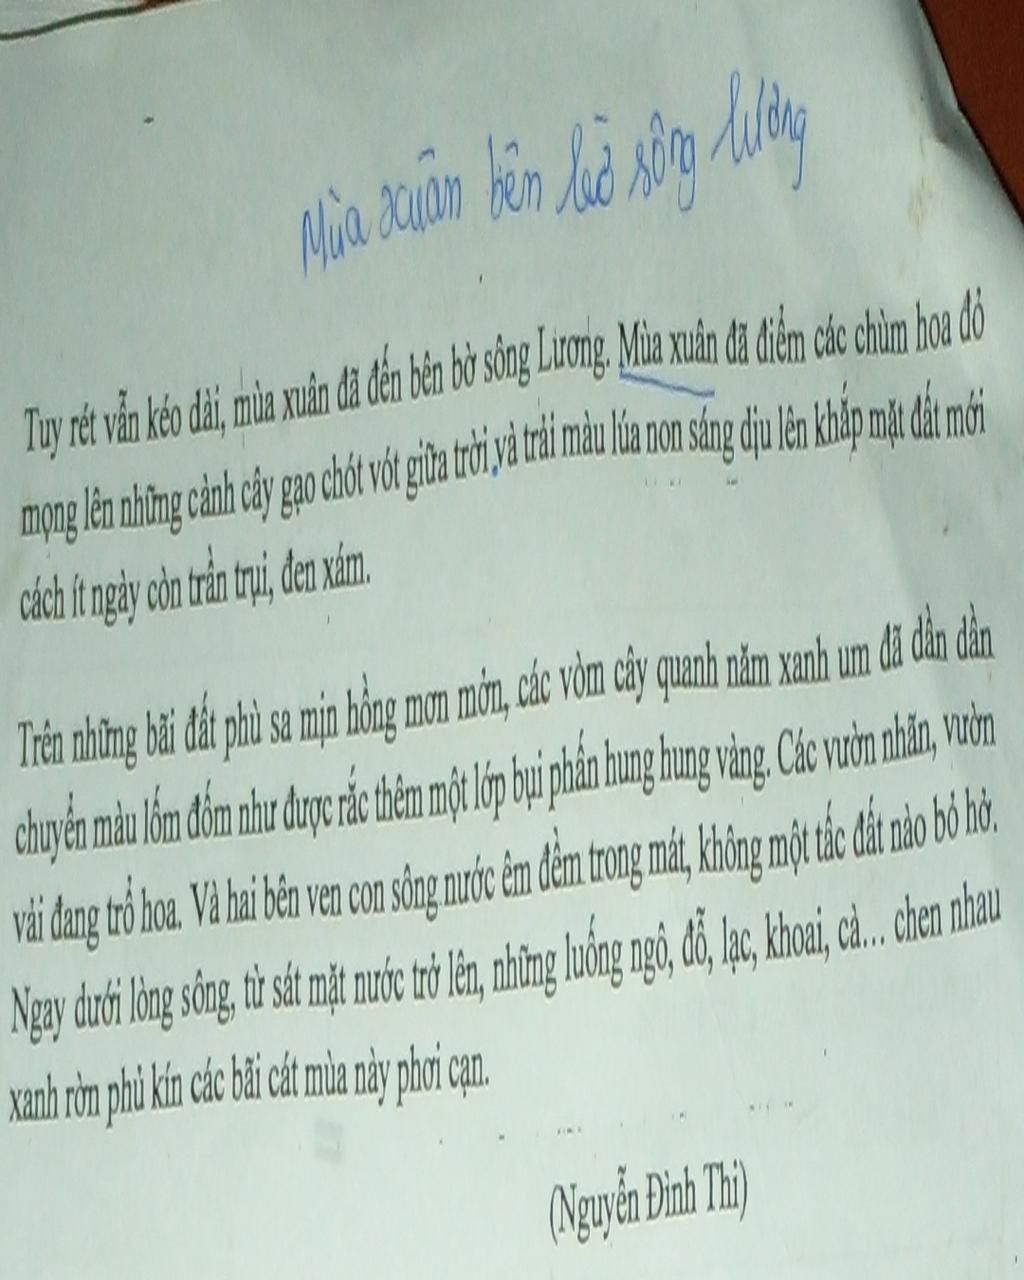 Mùa xuân bên bờ sông lương
Tuy rét vẫn kéo dài, mùa xuân đã đến bên bờ sông Lương. Mùa xuân đã điểm các chùm hoa đỏ
mọng lên những cành cây gạo chót vót giữa trời và trải màu lúa non sáng dịu lên khắp mặt đất mới
cách ít ngày còn trần trụi, đen xám.
Trên những bãi đất phù sa mịn hồng mơn mởn, các vòm cây quanh năm xanh um đã dần dần
chuyển màu lốm đốm như được rắc thêm một lớp bụi phấn hung hung vàng. Các vườn nhãn, vườn
vải đang trổ hoa. Và hai bên ven con sông nước êm đềm trong mát, không một tấc đất nào bỏ hở.
Ngay dưới lòng sông, từ sát mặt nước trở lên, những luống ngô, đỗ, lạc, khoai, cà... chen nhau
xanh rờn phủ kín các bãi cát mùa này phơi cạn.
(Nguyễn Đình Thi)